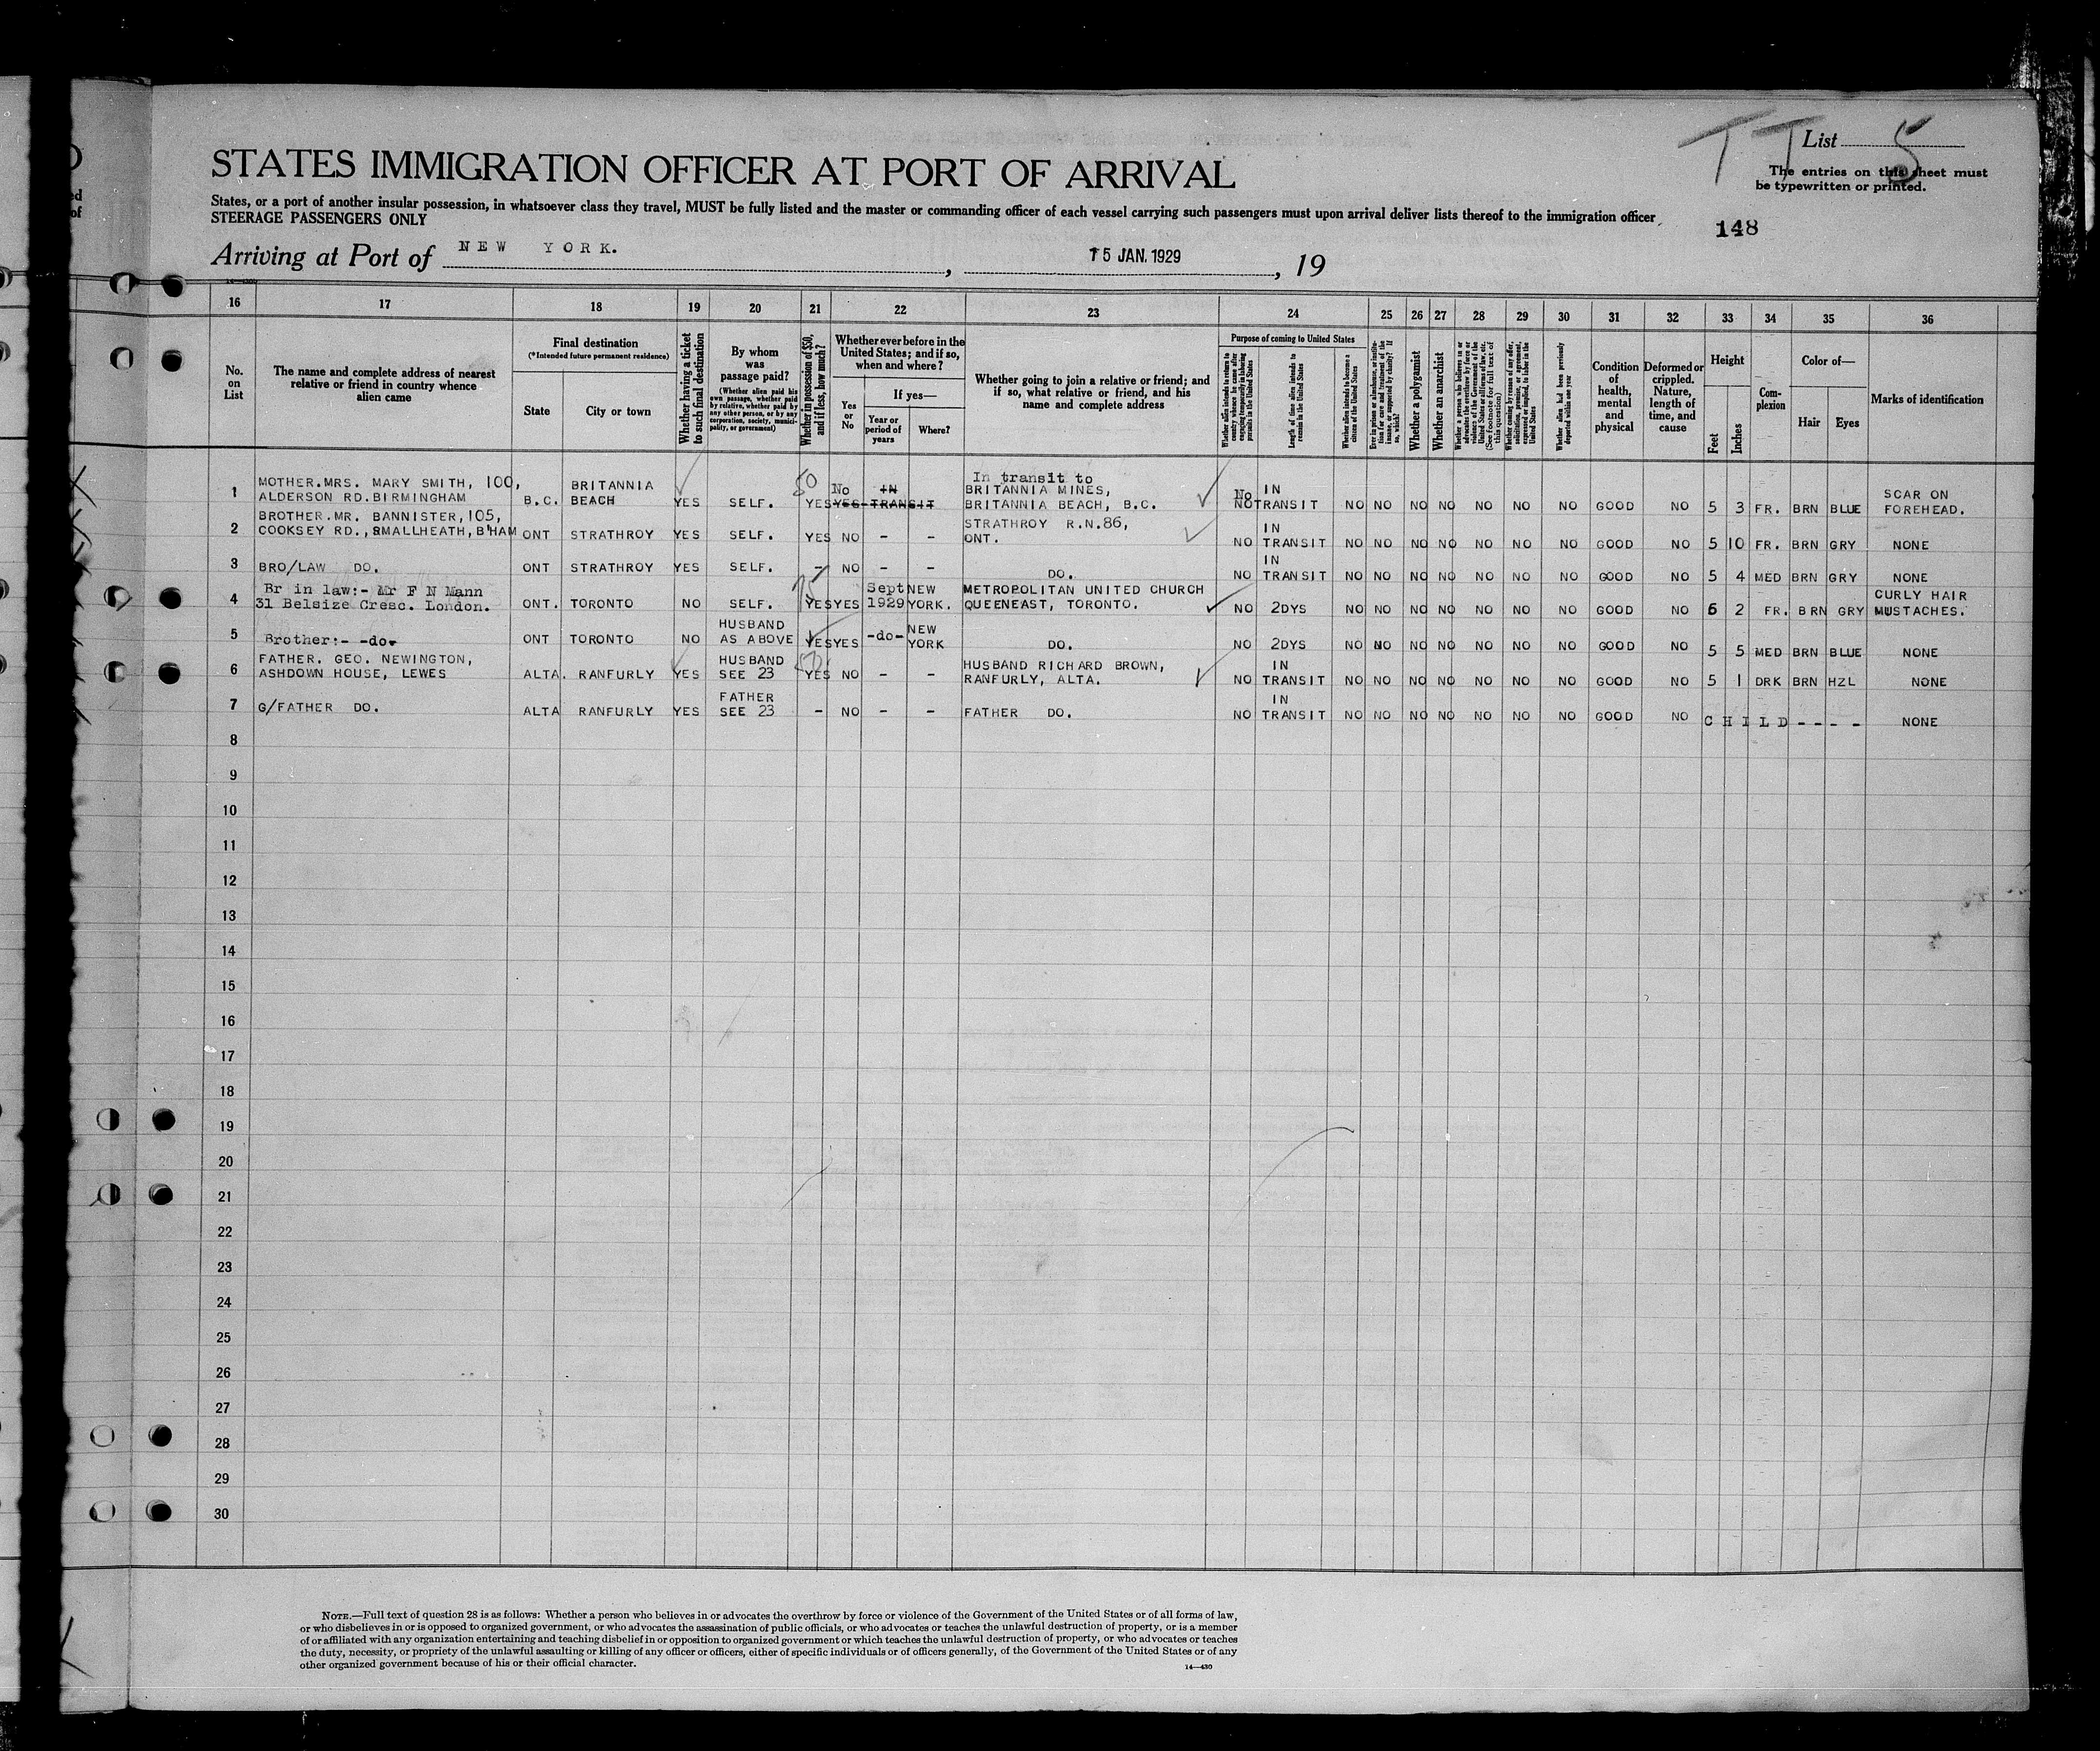 TT List 5
The entries on this sheet must
be typewritten or printed.
STATES IMMIGRATION OFFICER AT PORT OF ARRIVAL
States, or a port of another insular possession, in whatsoever class they travel, MUST be fully listed and the master or commanding officer of each vessel carrying such passengers must upon arrival deliver lists thereof to the immigration officer
STEERAGE PASSENGERS ONLY
148
Arriving at Port of NEW YORK. , 15 JAN. 1929 , 19
16 17 18 19 20 21 22 23 24 25 26 27 28 29 30 31 32 33 34 35 36
No. on List
The name and complete address of nearest relative or friend in country whence alien came
Final destination
(*Intended future permanent residence)
State
City or town
Whether having a ticket to such final destination
By whom was passage paid?
(Whether alien paid his own passage, whether paid by relative, whether paid by any other person, or by any corporation, society, municipality, or government)
Whether in possession of $50, and if less, how much?
Whether ever before in the United States; and if so, when and where?
Yes or No
If yes—
Year or period of years
Where?
Whether going to join a relative or friend; and if so, what relative or friend, and his name and complete address
Purpose of coming to United States
Whether alien intends to return to country whence he came after engaging temporarily in laboring pursuits in the United States
Length of time alien intends to remain in the United States
Whether alien intends to become a citizen of the United States
Ever in prison or almshouse, or institution for care and treatment of the insane, or supported by charity? If so, which?
Whether a polygamist
Whether an anarchist
Whether a person who believes in or advocates the overthrow by force or violence of the Government of the United States or all forms of law, etc. (See footnote for full text of this question)
Whether coming by reason of any offer, solicitation, promise, or agreement, expressed or implied, to labor in the United States
Whether alien had been previously deported within one year
Condition of health, mental and physical
Deformed or crippled. Nature, length of time, and cause
Height
Feet
Inches
Complexion
Color of—
Hair
Eyes
Marks of identification
1 MOTHER.MRS. MARY SMITH, 100, ALDERSON RD.BIRMINGHAM B.C. BRITANNIA BEACH YES SELF. 50 YES No YES IN TRANSIT In transit to BRITANNIA MINES, BRITANNIA BEACH, B.C. No NO IN TRANSIT NO NO NO NO NO NO NO GOOD NO 5 3 FR. BRN BLUE SCAR ON FOREHEAD.
2 BROTHER.MR. BANNISTER,105, COOKSEY RD.,SMALLHEATH,B'HAM ONT STRATHROY YES SELF. YES NO - - STRATHROY R.N.86, ONT. NO IN TRANSIT NO NO NO NO NO NO NO GOOD NO 5 10 FR. BRN GRY NONE
3 BRO/LAW DO. ONT STRATHROY YES SELF. - NO - - DO. NO IN TRANSIT NO NO NO NO NO NO NO GOOD NO 5 4 MED BRN GRY NONE
4 Br in law:- Mr F N Mann 31 Belsize Cresc. London. ONT. TORONTO NO SELF. YES YES Sept 1929 NEW YORK. METROPOLITAN UNITED CHURCH QUEENEAST, TORONTO. NO 2DYS NO NO NO NO NO NO NO GOOD NO 6 2 FR. BRN GRY CURLY HAIR MUSTACHES.
5 Brother:- -do- ONT TORONTO NO HUSBAND AS ABOVE YES YES -do- NEW YORK DO. NO 2DYS NO NO NO NO NO NO NO GOOD NO 5 5 MED BRN BLUE NONE
6 FATHER. GEO. NEWINGTON, ASHDOWN HOUSE, LEWES ALTA. RANFURLY YES HUSBAND SEE 23 YES NO - - HUSBAND RICHARD BROWN, RANFURLY, ALTA. NO IN TRANSIT NO NO NO NO NO NO NO GOOD NO 5 1 DRK BRN HZL NONE
7 G/FATHER DO. ALTA RANFURLY YES FATHER SEE 23 - NO - - FATHER DO. NO IN TRANSIT NO NO NO NO NO NO NO GOOD NO CHILD - - - - NONE
8
9
10
11
12
13
14
15
16
17
18
19
20
21
22
23
24
25
26
27
28
29
30
NOTE.—Full text of question 28 is as follows: Whether a person who believes in or advocates the overthrow by force or violence of the Government of the United States or of all forms of law,
or who disbelieves in or is opposed to organized government, or who advocates the assassination of public officials, or who advocates or teaches the unlawful destruction of property, or is a member
of or affiliated with any organization entertaining and teaching disbelief in or opposition to organized government or which teaches the unlawful destruction of property, or who advocates or teaches
the duty, necessity, or propriety of the unlawful assaulting or killing of any officer or officers, either of specific individuals or of officers generally, of the Government of the United States or of any
other organized government because of his or their official character.
14—430